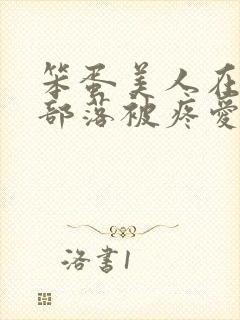 笨蛋美人在
部落被疼爱
洛書1